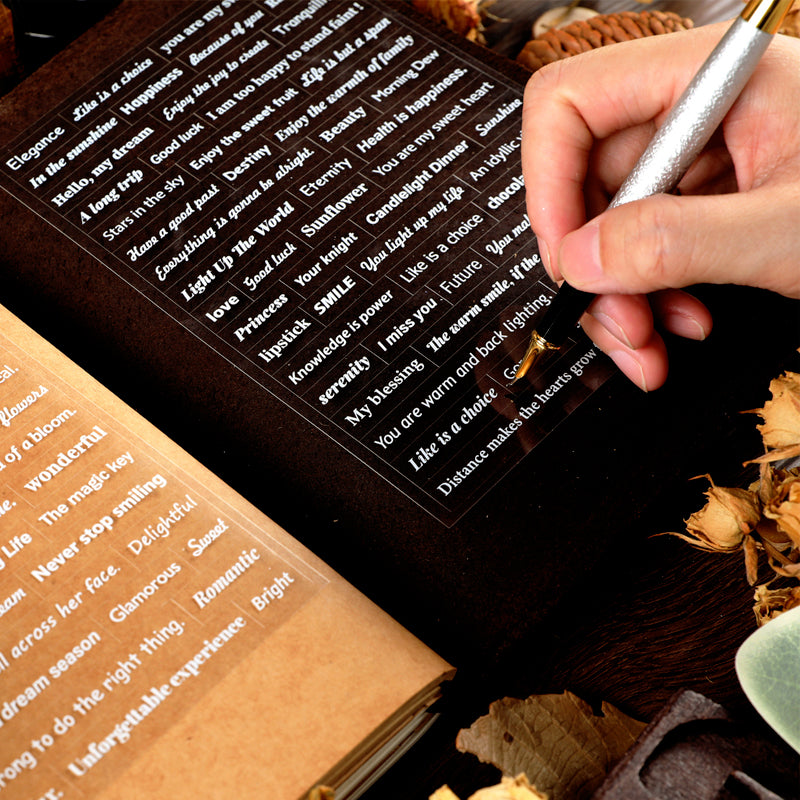 Elegance Like is a choice you are my
In the sunshine Happiness Because of you
Hello, my dream Enjoy the joy to create Tranquili
A long trip Good luck I am too happy to stand faint !
Stars in the sky Enjoy the sweet fruit Life is but a span
Have a good past Destiny Enjoy the warmth of family
Everything is gonna be alright. Beauty Morning Dew
Light Up The World Eternity Health is happiness.
love Good luck Sunflower You are my sweet heart
Princess Your knight Candlelight Dinner Sunshine
lipstick SMILE You light up my life An idyllic
Knowledge is power Like is a choice chocola
serenity I miss you Future You mak
My blessing The warm smile, if the
You are warm and back lighting,
Like is a choice Go
Distance makes the hearts grow
eal.
flowers
d of a bloom.
wonderful
g Life The magic key
eam Never stop smiling
ll across her face. Delightful
dream season Glamorous Sweet
rong to do the right thing. Romantic
Unforgettable experience Bright